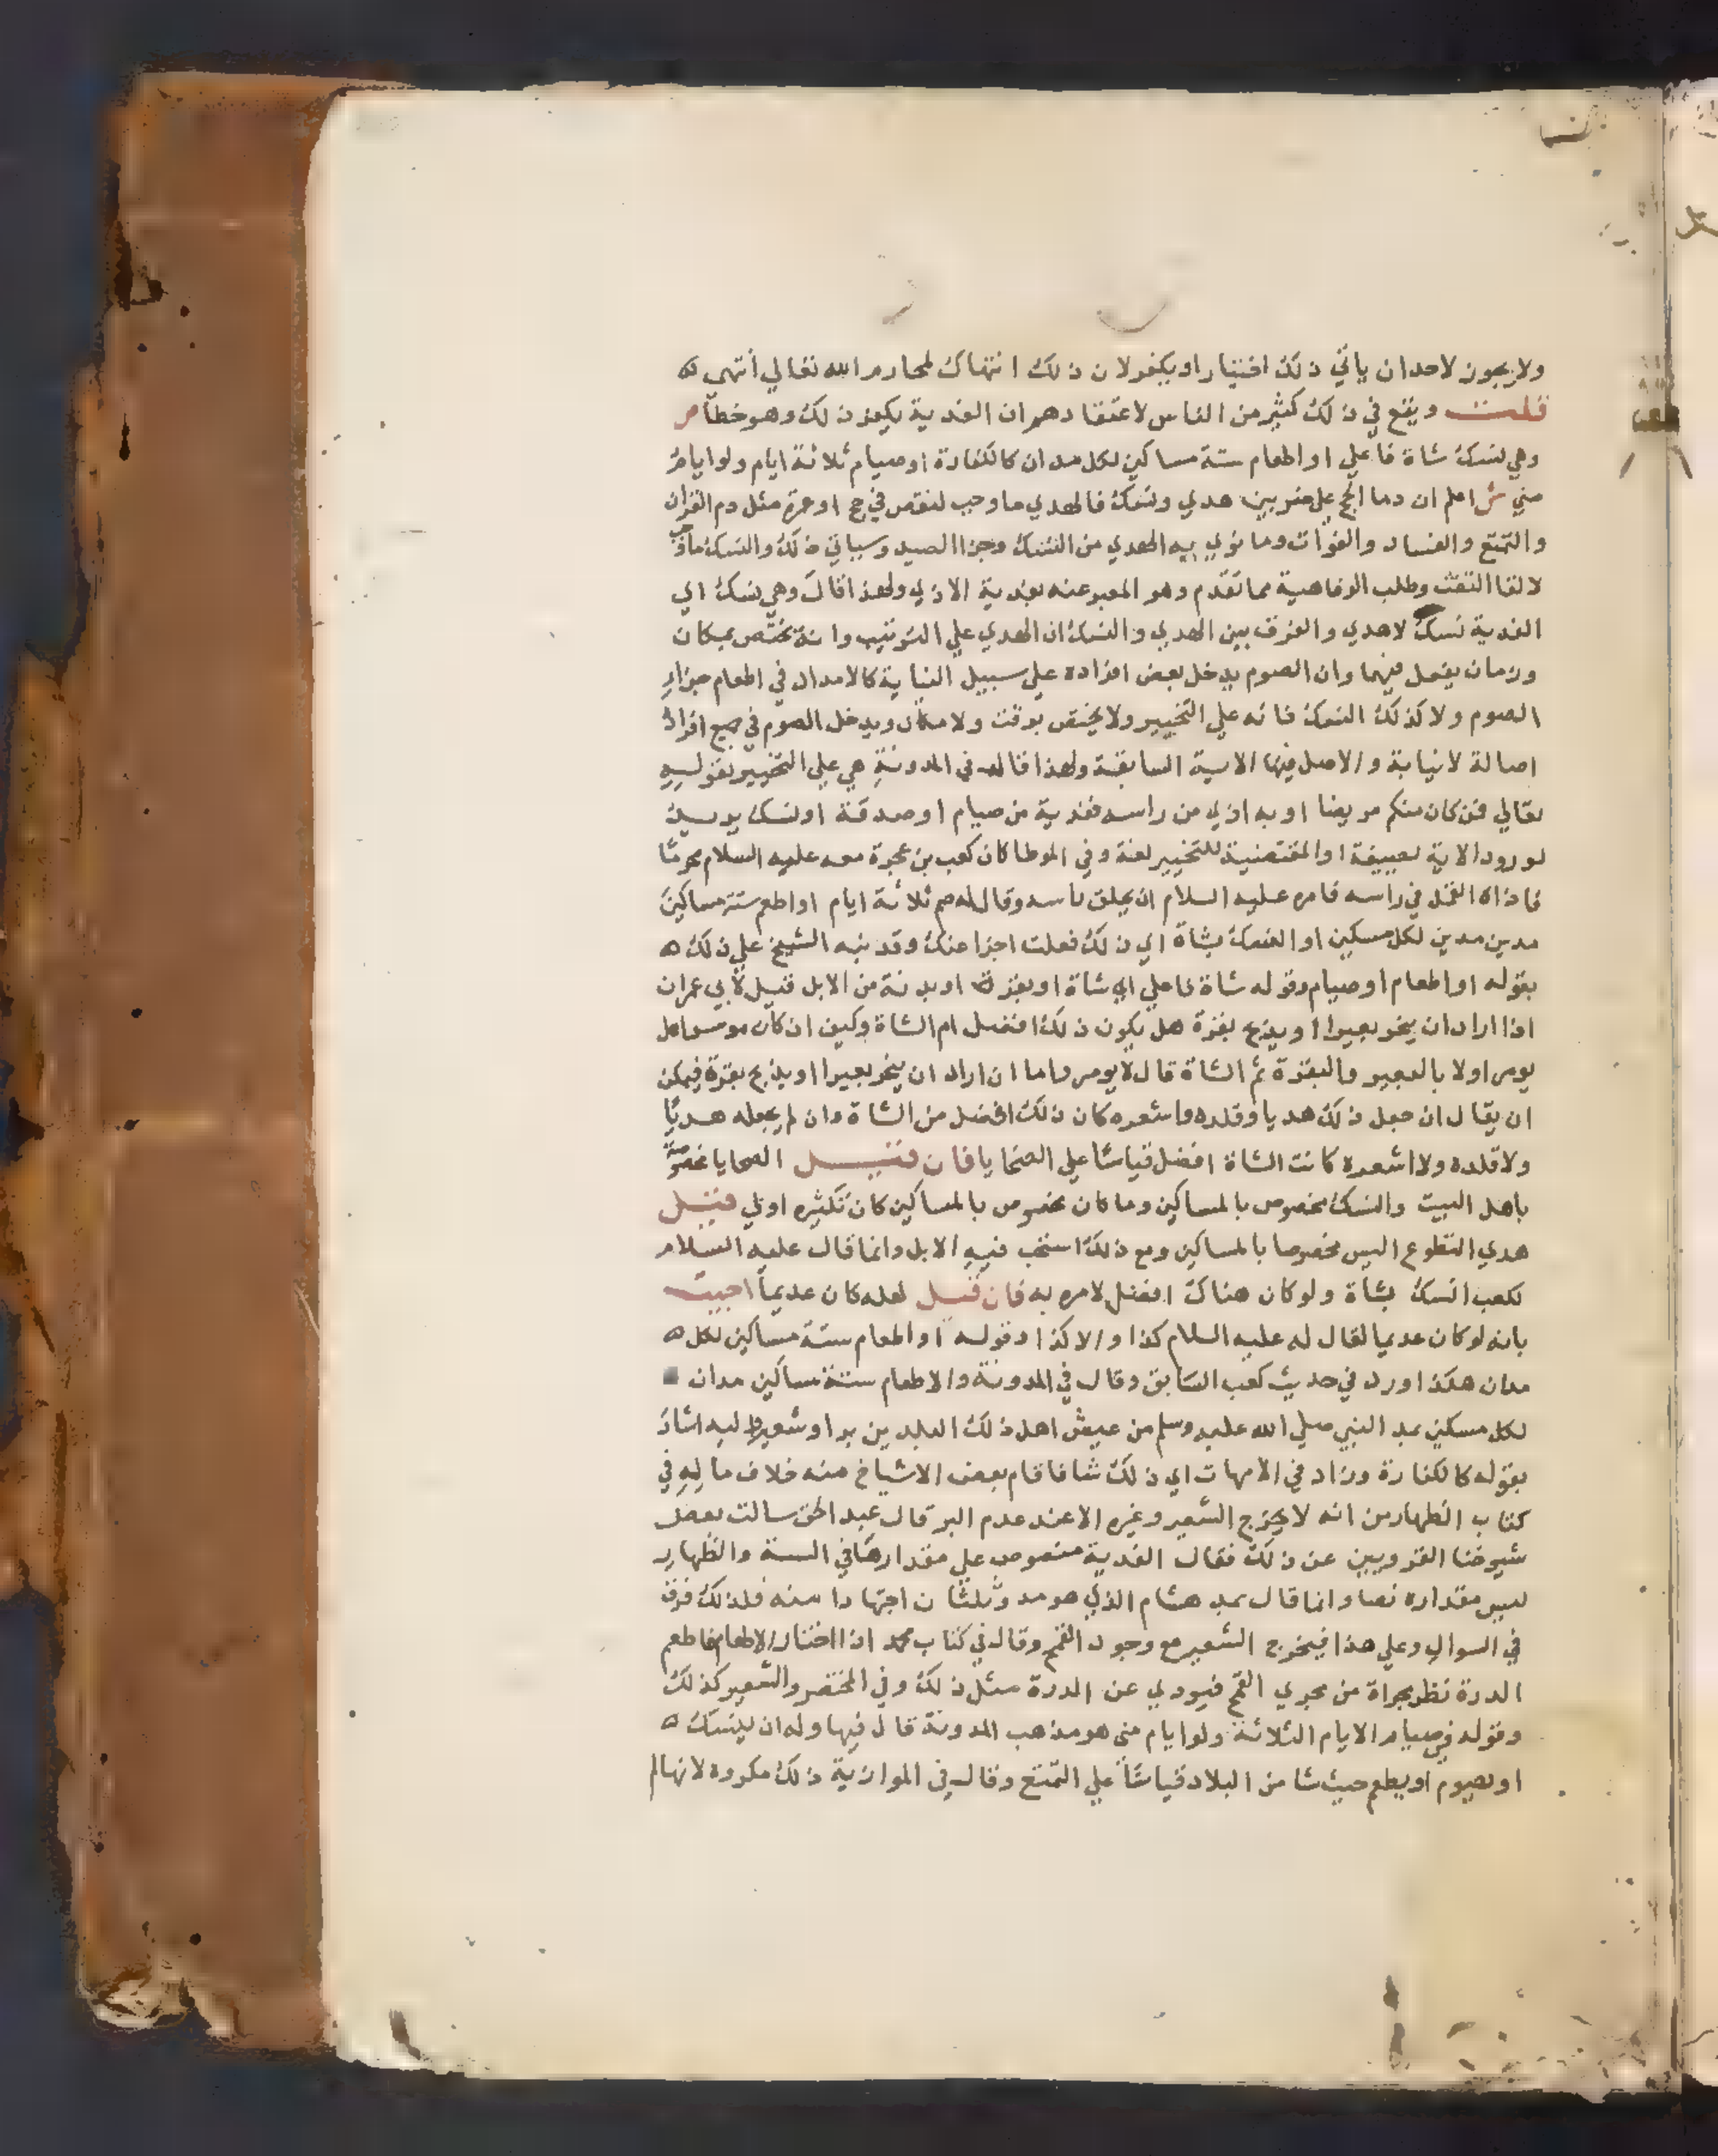 ولا يجوز لاحد ان ياتي ذلك اختيارا ويكفر لان ذلك انتهاك لمحارم الله تعالي انتهي ه
قلت ويقع في ذلك كثير من الناس لاعتقادهم ان الفدية يكون ذلك وهو خطا ص
وهي نسك شاة فاعلي او اطعام ستة مساكين لكل مدان كالكفارة او صيام ثلاثة ايام ولو ايام
مني ش اعلم ان دما الحج علي ضربين هدي ونسك فالهدي ما وجب لنقص في حج او عمرة مثل دم القران
والتمتع والفساد والفوات وما نوي به الهدي من النسك وجزا الصيد وسياتي ذلك والنسك ما وجب
لالقا التفث وطلب الرفاهية مما تقدم وهو المعبر عنه بفدية الاذي ولهذا قال وهي نسك اي
الفدية نسك لا هدي والفرق بين الهدي والنسك ان الهدي علي الترتيب وانه يختص بمكان
وزمان يفعل فيهما وان الصوم يدخل بعض افراده علي سبيل النيابة كالامداد في اطعام جزا
الصوم ولا كذلك النسك فانه علي التخيير ولا يختص بوقت ولا مكان ويدخل الصوم في جميع افراد
اصالة لا نيابة والاصل فيها الاية السابقة ولهذا قال في المدونة هي علي التخيير بقوله
تعالي فمن كان منكم مريضا او به اذي من راسه ففدية من صيام او صدقة او نسك يريد
لورود الاية بصيغة او المقتضية للتخيير لغة وفي الموطا كان كعب بن عجرة معه عليه السلام محرما
فاذاه القمل في راسه فامره عليه السلام ان يحلق راسه وقال له صم ثلاثة ايام او اطعم ستة مساكين
مدين مدين لكل مسكين او انسك بشاة اي ذلك فعلت اجزا عنك وقد نبه الشيخ علي ذلك ه
بقوله او اطعام او صيام وقوله شاة فاعلي اي شاة او بقرة او بدنة من الابل قيل لابي عمران
اذا اراد ان ينحر بعيرا او يذبح بقرة هل يكون ذلك افضل ام الشاة وكيف ان كان موسرا هل
يومر اولا بالبعير والبقرة ثم الشاة قال لا يومر واما ان اراد ان ينحر بعيرا او يذبح بقرة فيمكن
ان يقال ان جعل ذلك هديا وقلده واشعره كان ذلك افضل من الشاة وان لم يجعله هديا
ولا قلده ولا اشعره كانت الشاة افضل قياسا علي الضحايا فان قيل الضحايا مخصوصة
باهل البيت والنسك مخصوص بالمساكين وما كان مخصوص بالمساكين كان تكثيره اولي قيل
هدي التطوع اليس مخصوصا بالمساكين ومع ذلك استحب فيه الابل وانما قال عليه السلام
لكعب انسك بشاة ولو كان هناك افضل لامره به فان قيل لعله كان عديما اجيب
بانه لو كان عديما لقال له عليه السلام كذا والا كذا وقوله او اطعام ستة مساكين لكل ه
مدان هكذا ورد في حديث كعب السابق وقال في المدونة والاطعام ستة مساكين مدان
لكل مسكين بمد النبي صلي الله عليه وسلم من عيش اهل ذلك البلد من بر او شعير واليه اشار
بقوله كالكفارة وزاد في الامهات اي ذلك شا فاقام بعض الاشياخ منه خلاف ما له في
كتاب الظهار من انه لا يخرج الشعير وغيره الا عند عدم البر قال عبد الحق سالت بعض
شيوخنا القرويين عن ذلك فقال الفدية منصوص علي مقدارها في السنة والظهار
ليس مقداره نصا وانما قال بمد هشام الذي هو مد وثلثان اجتهادا منه فلذلك فرق
في السوال وعلي هذا فيخرج الشعير مع وجود القمح وقال في كتاب محمد اذا اختار الاطعام فاطعم
الدرة نظر مجراة من مجري القمح فيودي عن الدرة مثل ذلك وفي المختصر والشعير كذلك
وقوله في صيام الايام الثلاثة ولو ايام مني هو مذهب المدونة قال فيها وله ان ينسك ه
او يصوم او يطعم حيث شا من البلاد قياسا علي التمتع وقال في الموازية ذلك مكروه لانها لم